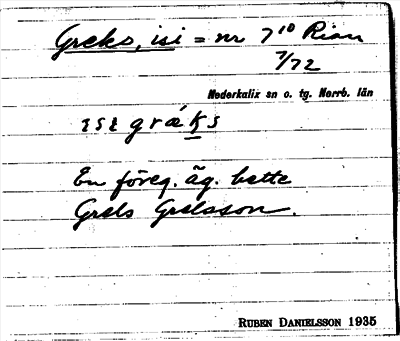 Greks, isi = nr 7¹⁰ Rian
7/72
Nederkalix sn o. tg. Norrb. län
ɪsɪ gráks
En föreg. äg. hette
Grels Grelsson.
RUBEN DANIELSSON 1935